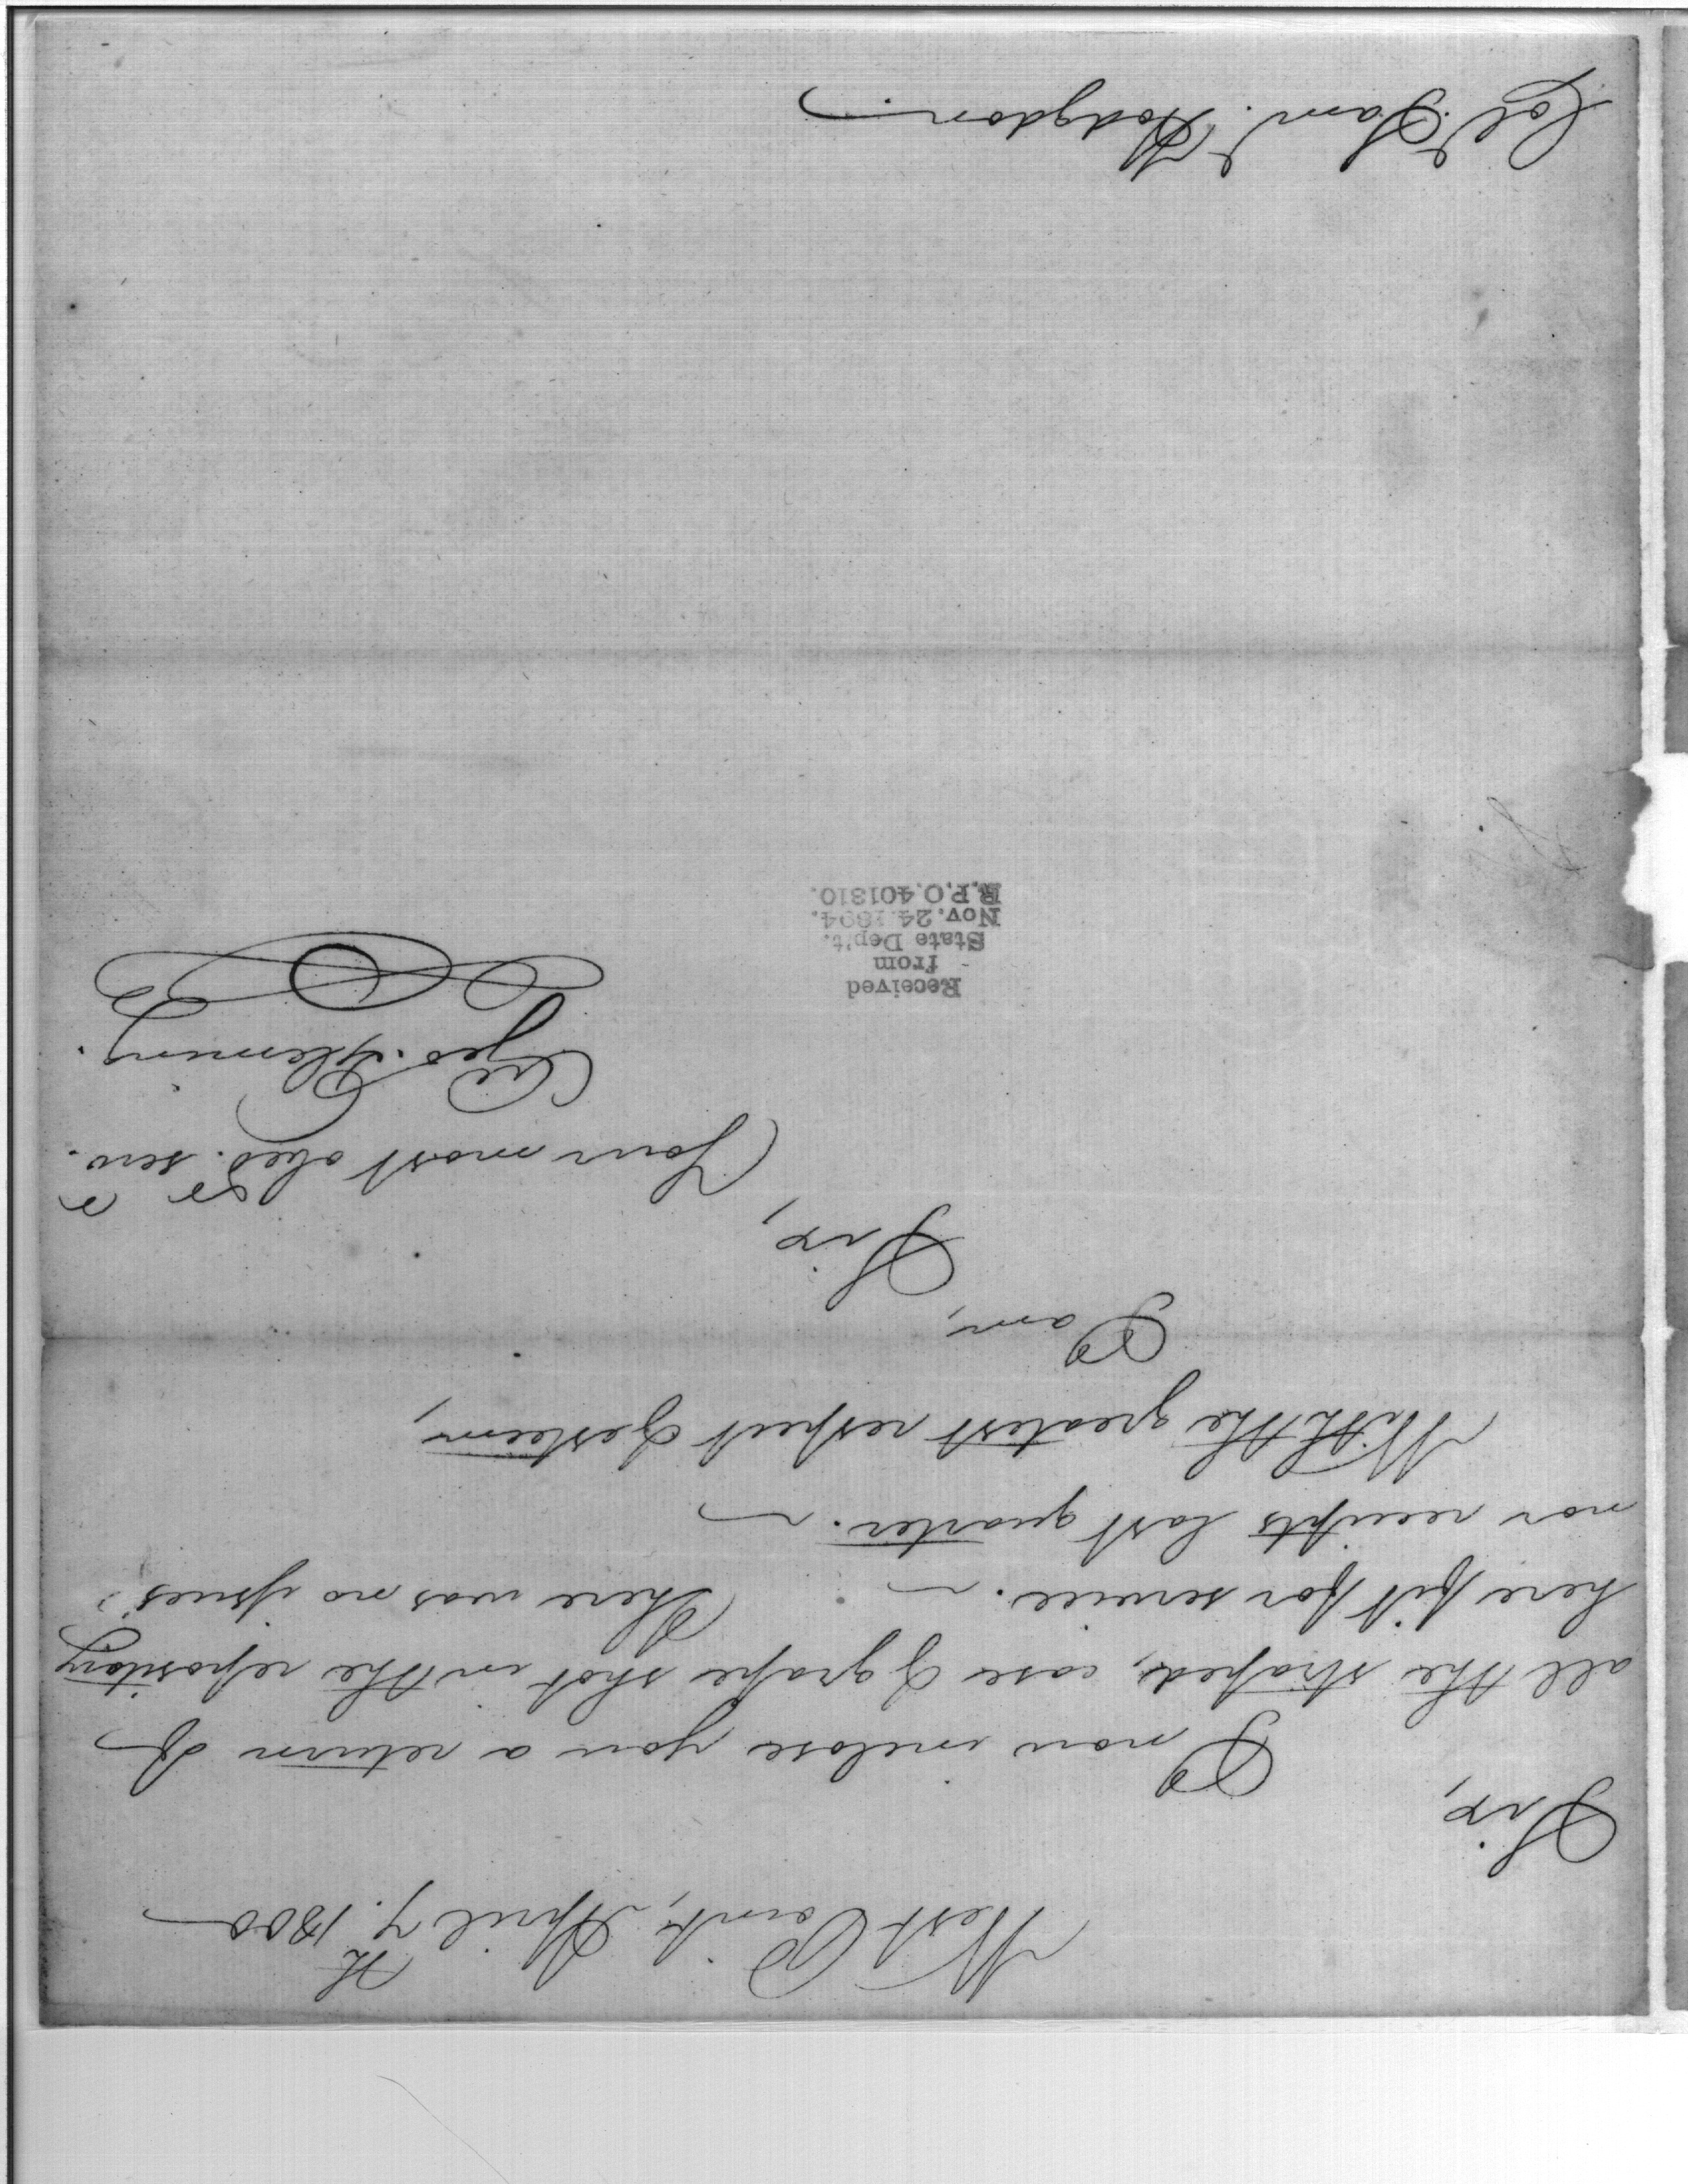 West Point, April 7.th 1800
Sir,
I now inclose you a return of
all the straped, case & grape shot in the repository
here fit for service. There was no issues
nor receipts last quarter.
With the greatest respect & esteem,
I am,
Sir,
Your most obed.t serv.t
Geo. Fleming.
Received
from
State Dep't.
Nov. 24. 1894.
R.P.O. 401310.
Col. Sam.l Hodgdon